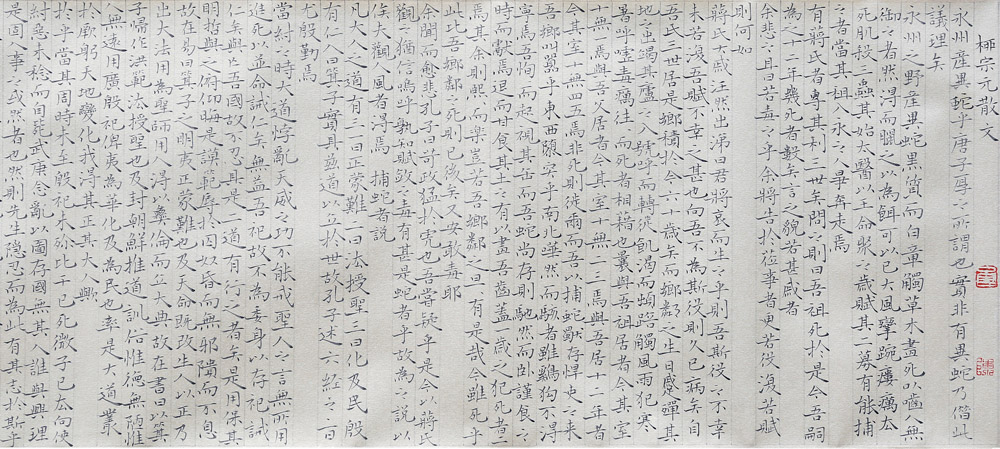 柳宗元散文
永州產異蛇乎庚子厚之所謂也實非有異蛇乃借此
議理矣
永州之野產異蛇黑質而白章觸草木盡死以嚙人無
御之者然得而臘之以為餌可以已大風攣踠瘻癘去
死肌殺三蟲其始大醫以王命聚之歲賦其二募有能捕
之者當其租入永之人畢奔走焉
有蔣氏者專其利三世矣問之則曰吾祖死於是今吾嗣
為之十二年幾死者數矣言之貌若甚慼者
余悲之且曰若毒之乎余將告於蒞事者更若役復若賦
則何如
蔣氏大戚汪然出涕曰君將哀而生之乎則吾斯役之不幸
未若復吾賦不幸之甚也向吾不為斯役則久已病矣自
吾氏三世居是鄉積於今六十歲矣而鄉鄰之生日蹙殫其
地之出竭其廬之入號呼而轉徙飢渴而頓踣觸風雨犯寒
暑呼噓毒癘往往而死者相藉也曩與吾祖居者今其室
十無一焉與吾父居者今其室十無二三焉與吾居十二年者
今其室十無四五焉非死則徙爾而吾以捕蛇獨存悍吏之來
吾鄉叫囂乎東西隳突乎南北譁然而駭者雖雞狗不得
寧焉吾恂恂而起視其缶而吾蛇尚存則弛然而臥謹食之
時而獻焉退而甘食其土之有以盡吾齒蓋一歲之犯死者二
焉其余則熙熙而樂豈若吾鄉鄰之旦旦有是哉今雖死乎
此比吾鄉鄰之死則已後矣又安敢毒耶
余聞而愈悲孔子曰苛政猛於虎也吾嘗疑乎是今以蔣氏
觀之猶信嗚呼孰知賦斂之毒有甚是蛇者乎故為之說以
俟夫觀人風者得焉 捕蛇者說
凡大人之道有三一曰正蒙難二曰法授聖三曰化及民殷
有仁人曰箕子實具茲道以立於世故孔子述六經之旨
尤殷勤焉
當紂之時大道悖亂天威之功不能戒聖人之言無所用
進死以並命誠仁矣無益吾祀故不為委身以存祀誠
仁矣與亡吾國故不忍具是二道有行之者矣是用保其
明哲與之俯仰晦是謨範辱於囚奴昏而無邪隤而不息
故在易曰箕子之明夷正蒙難也及天命既改生人以正乃
出大法用為聖師周人得以序彝倫而立大典故在書曰以箕
子歸作洪範法授聖也及封朝鮮推道訓俗惟德無陋惟
人無遠用廣殷祀俾夷為華化及民也率是大道叢
於厥躬天地變化我得其正其大人歟
於乎當其周時未至殷祀未殄比干已死微子已去向使
紂惡未稔而自斃武庚念亂以圖存國無其人誰與興理
是固人事之或然者也然則先生隱忍而為此有其志於斯乎